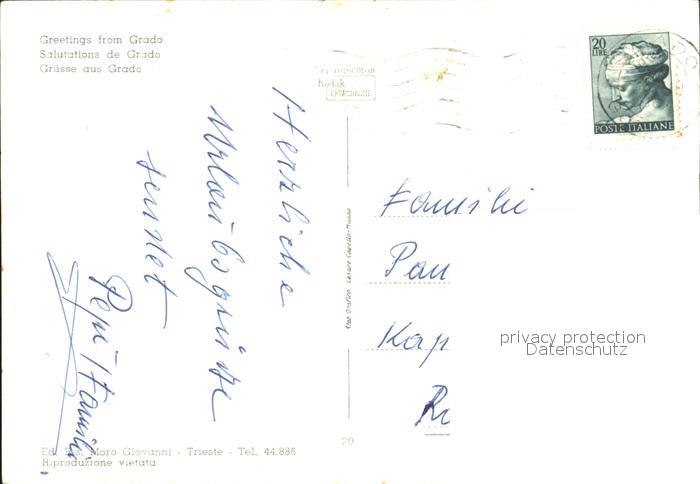 Greetings from Grado
Salutations de Grado
Grüsse aus Grado
Kodak
EKTACHROME
20
LIRE
POSTE ITALIANE
Herzliche
Urlaubsgrüsse
sendet
Pepi + Familie
Familie
Pau
Kap
privacy protection
Datenschutz
20
Ed. Ris. Moro Giovanni - Trieste - Tel. 44.886
Riproduzione vietata